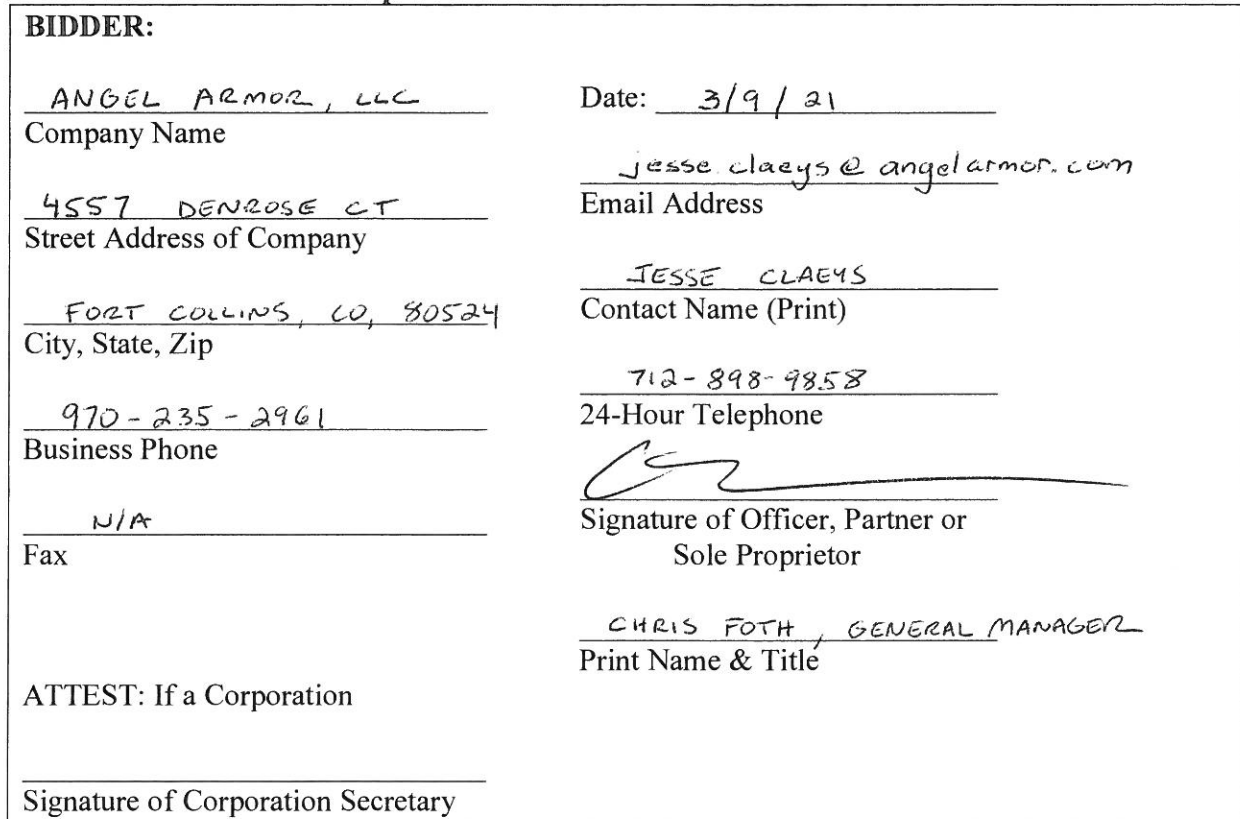 BIDDER:
ANGEL ARMOR, LLC
Company Name
4557 DENROSE CT
Street Address of Company
FORT COLLINS, CO, 80524
City, State, Zip
970-235-2961
Business Phone
N/A
Fax
ATTEST: If a Corporation
Signature of Corporation Secretary
Date: 3/9/21
jesse.claeys@angelarmor.com
Email Address
JESSE CLAEYS
Contact Name (Print)
712-898-9858
24-Hour Telephone
Signature of Officer, Partner or
Sole Proprietor
CHRIS FOTH, GENERAL MANAGER
Print Name & Title